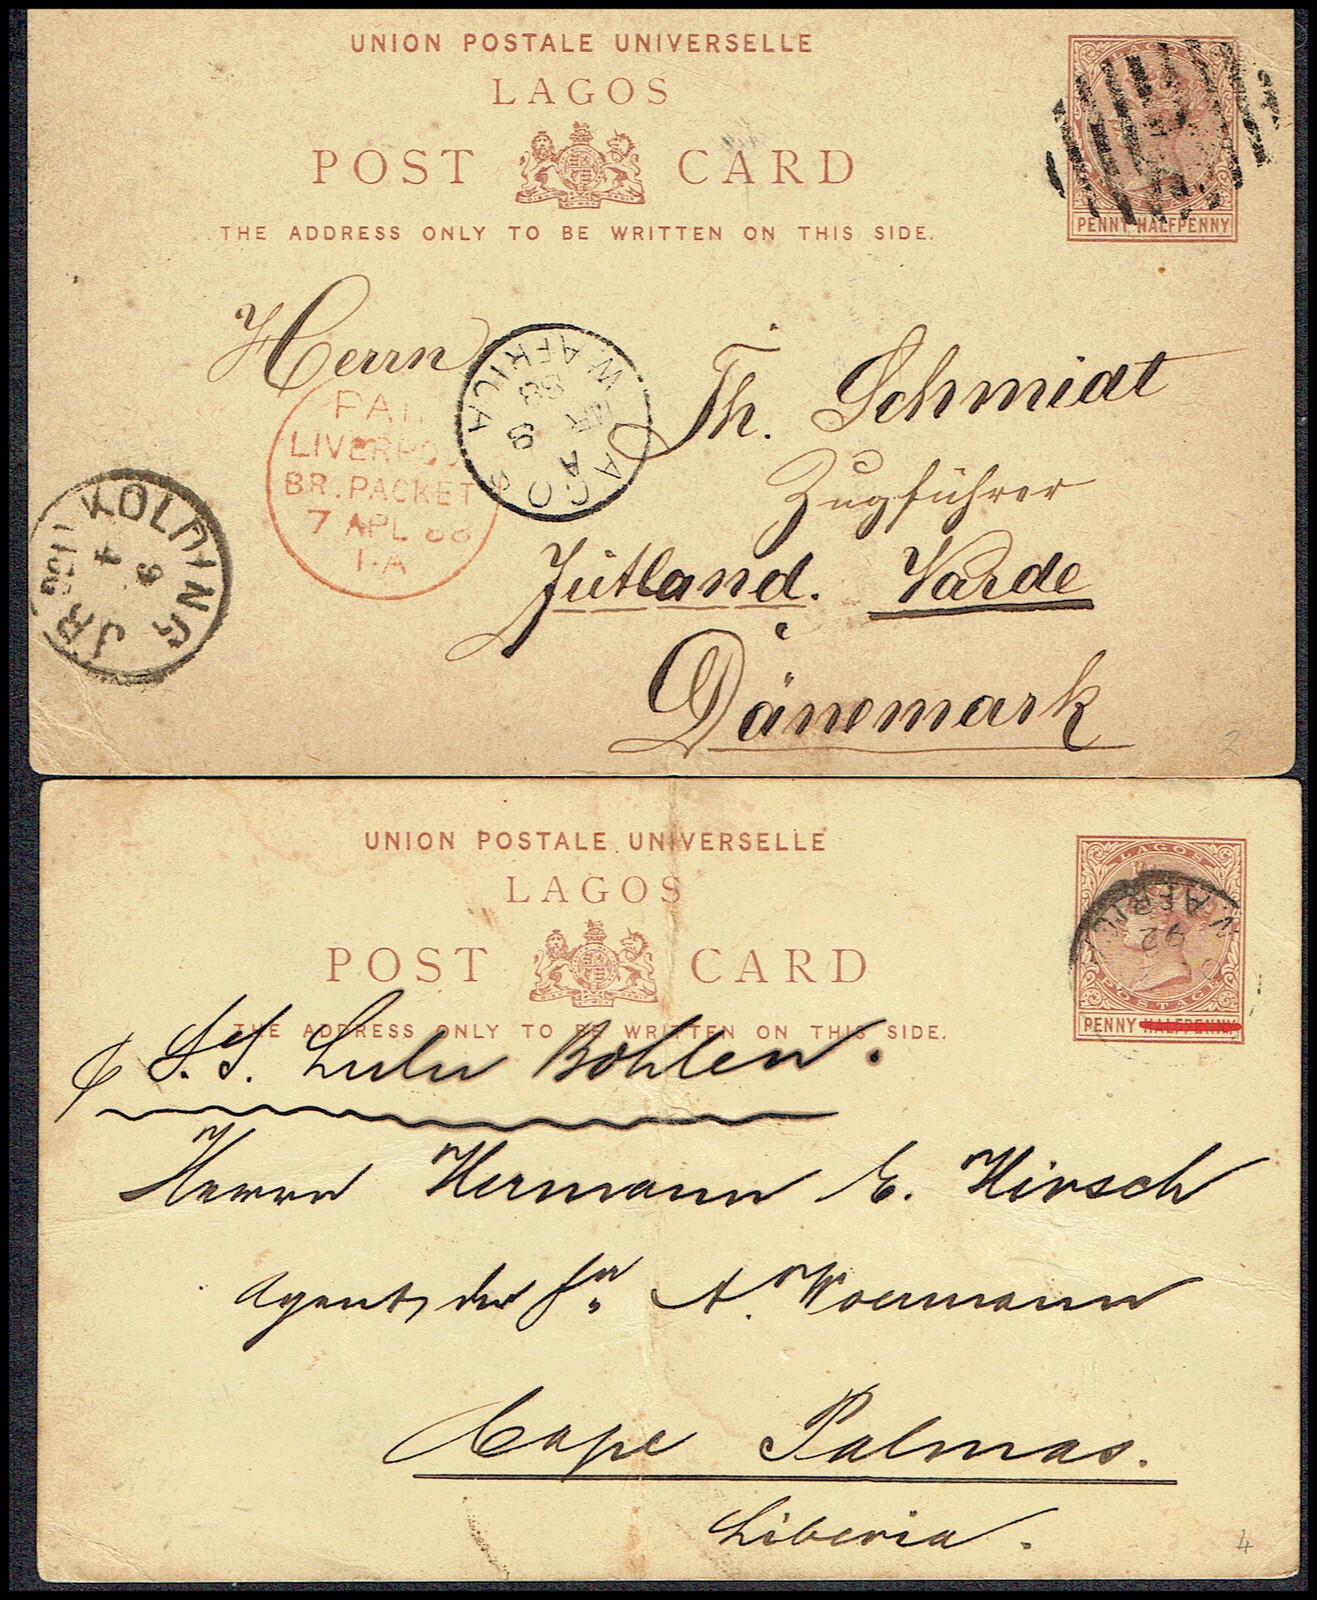 UNION POSTALE UNIVERSELLE
LAGOS
POST CARD
THE ADDRESS ONLY TO BE WRITTEN ON THIS SIDE.
PENNY HALFPENNY
Herrn
Th. Schmidt
Zugführer
Jütland. Varde
Dänemark
LAGOS W AFRICA
A
9
88
PAI
LIVERPOO
BR. PACKET
7 APL 88
1.A
KOLDING
9 4
JR
2
UNION POSTALE UNIVERSELLE
LAGOS
POST CARD
THE ADDRESS ONLY TO BE WRITTEN ON THIS SIDE.
LAGOS
POSTAGE
PENNY HALFPENNY
W. AFRICA
92
S.S. Lulu Bohlen.
Herrn Hermann E. Hirsch
Agent der Fa A. Woermann
Cape Palmas.
Liberia.
4